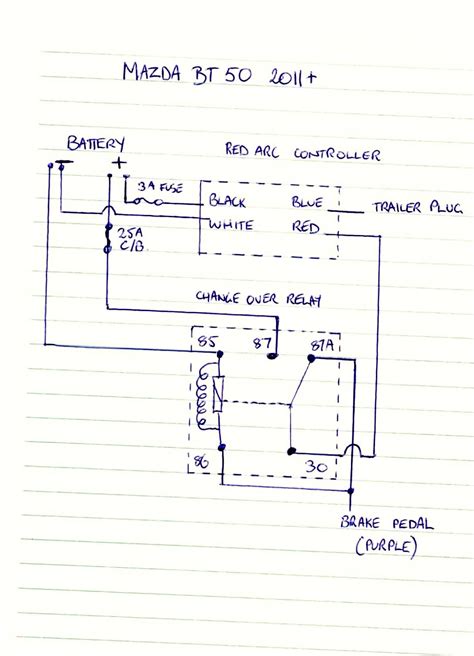 MAZDA BT 50 2011+
BATTERY
RED ARC CONTROLLER
- +
3A FUSE
BLACK BLUE TRAILER PLUG
WHITE RED
25A
C/B
CHANGE OVER RELAY
85 87 87A
86 30
BRAKE PEDAL
(PURPLE)